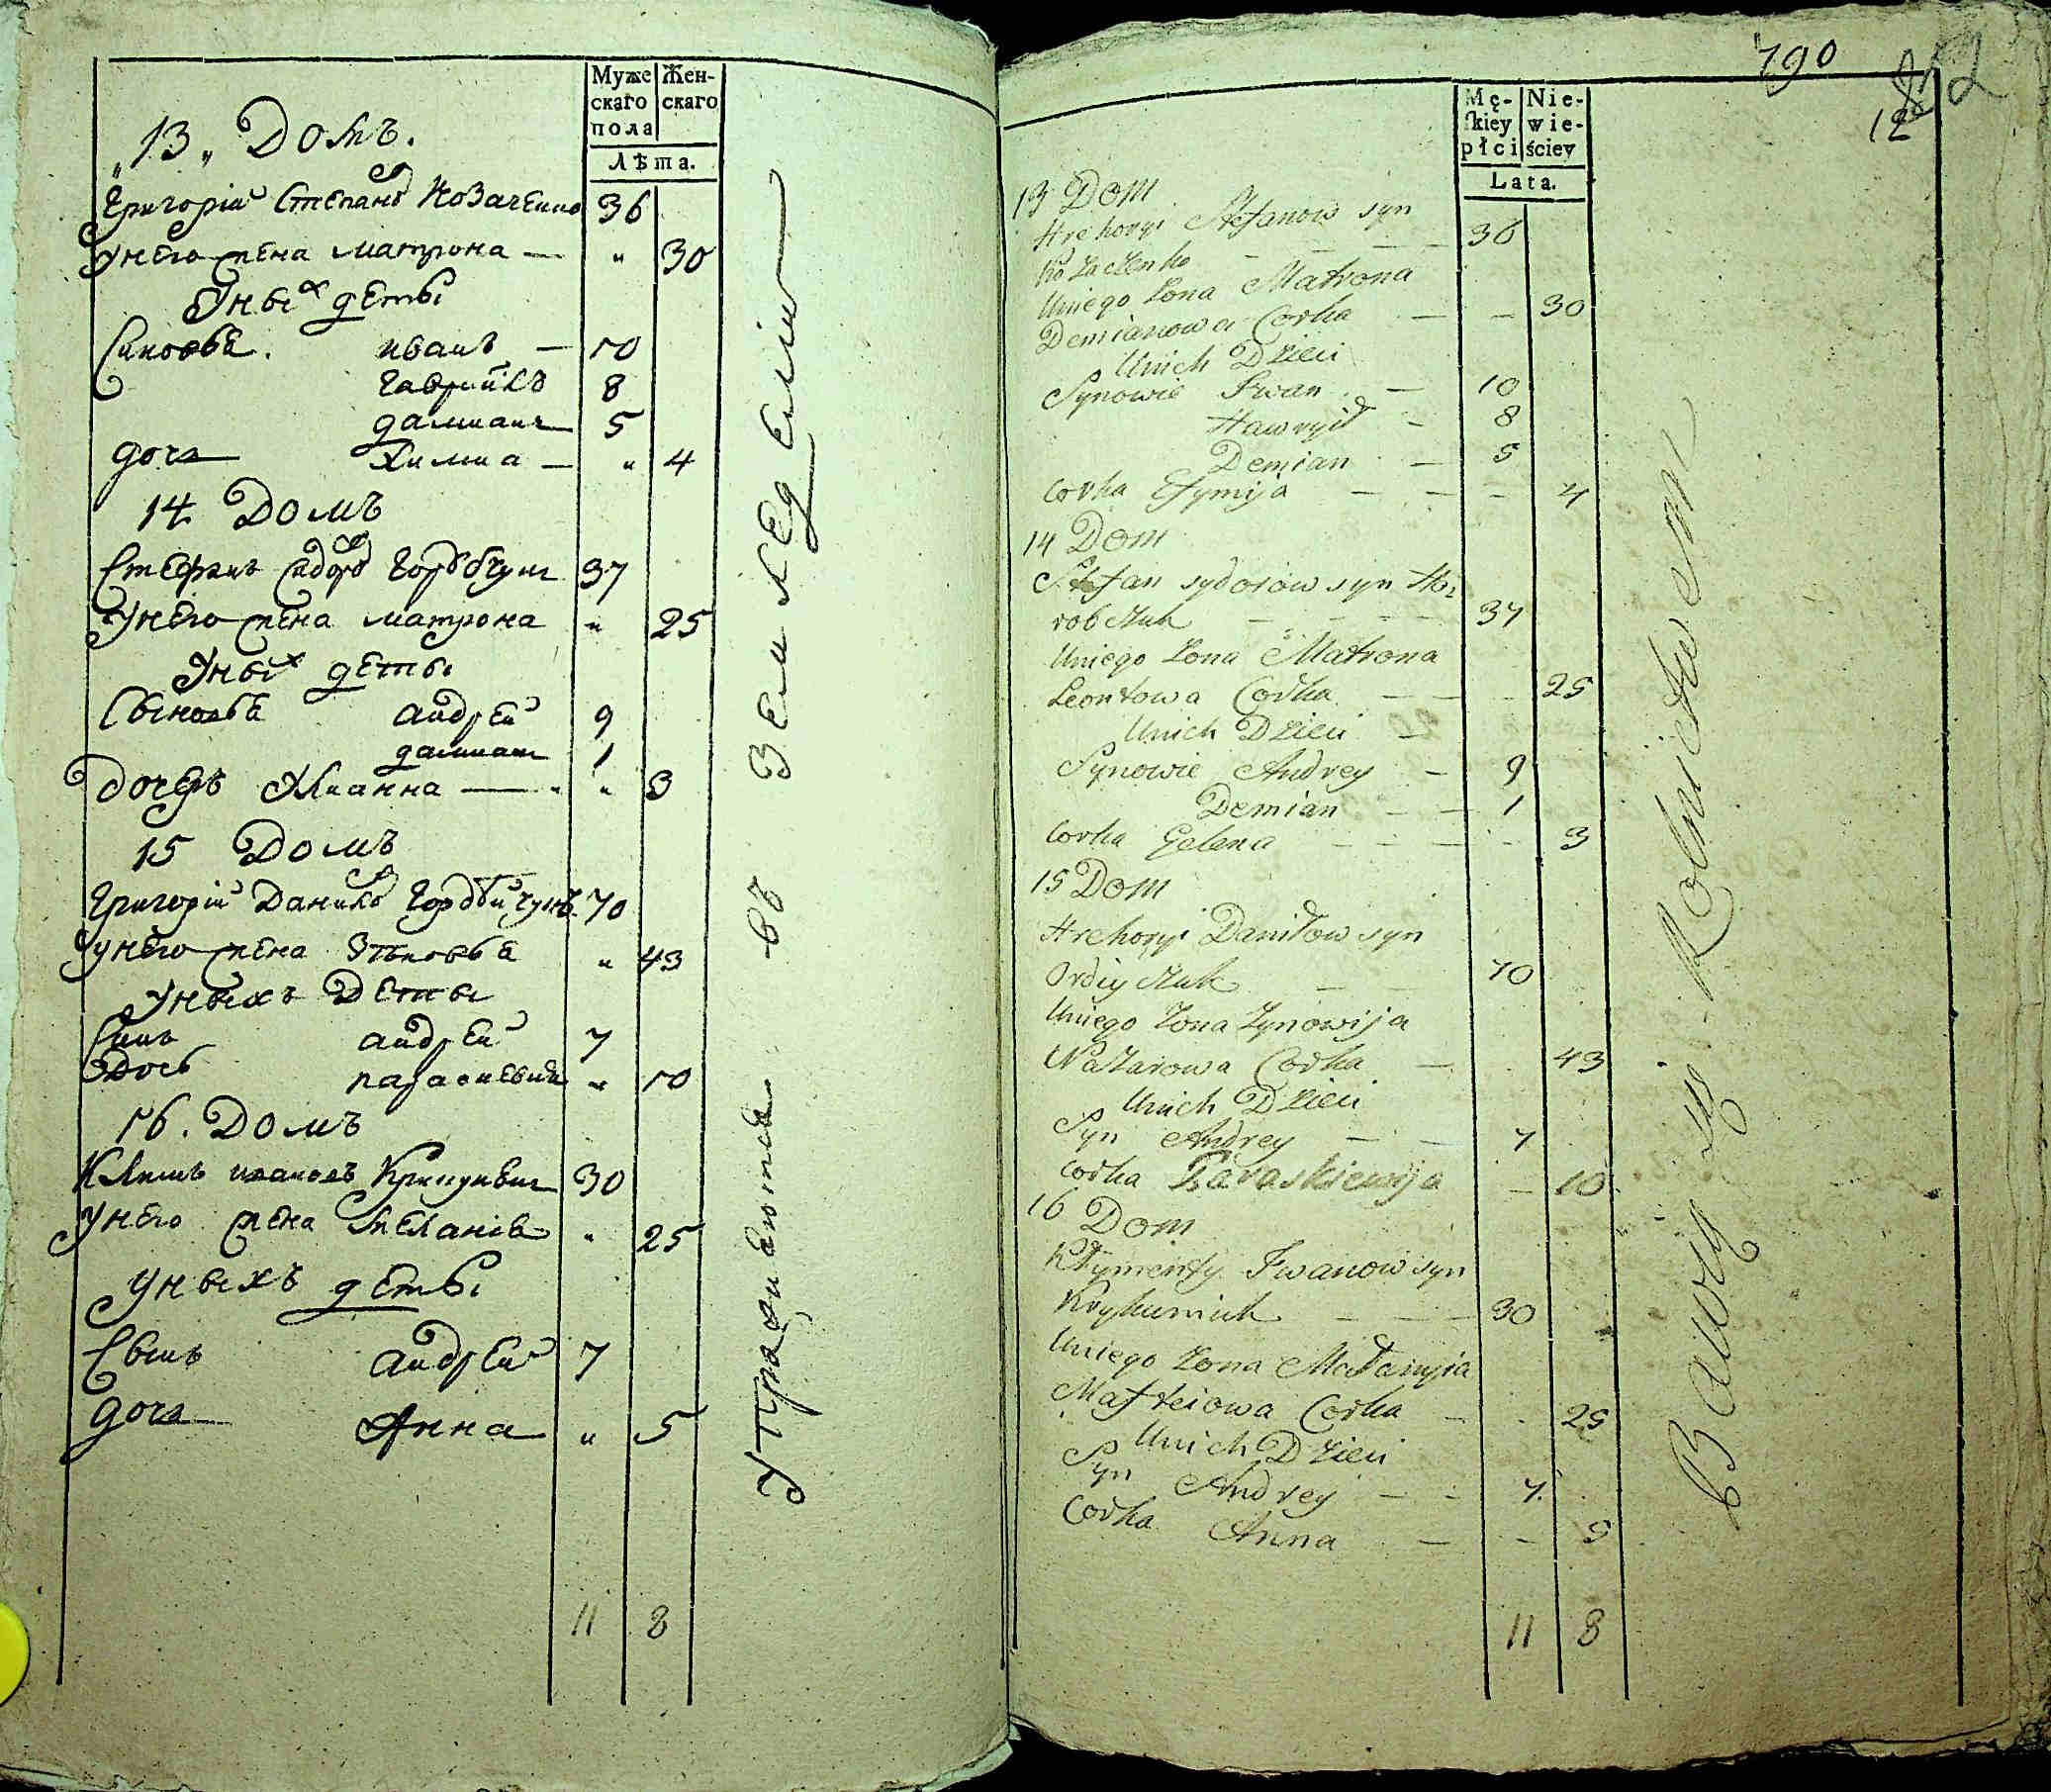 Муже
скаго
пола
Жен-
скаго
Лѣта.
„13„ Домъ.
Григорій Степановъ Козаченко 36
У него жена матрона — „ 30
У ныхъ деты
Синовѣ. иванъ — 10
Гаврійлъ 8
дамианъ 5
дочь Химиа — „ 4
14 Домъ
Стефанъ сидоровъ Горобчукъ 37
У него жена матрона „ 25
У ныхъ деты
Сыновѣ андрей 9
дамианъ 1
Дочеръ Улианна — „ „ 3
15 Домъ
Григорій Данилов Гордѣйчукъ 70
у него жена Зѣновѣа „ 43
У ныхъ Деты
Синъ андрей 7
Дочь параскевиа „ 10
16. Домъ
Климъ ивановъ Крикунивъ 30
У него жена Меланіа „ 25
У ныхъ деты
Сынъ андрей 7
дочь Анна „ 5
11 8
Упражняются въ Земледелии
790
12
Mę-
skiey
płci
Nie-
wie-
ściey
Lata.
13 Dom
Hrehoryi Stefanow syn
Kozaczenko - - - - 36
Uniego Zona Matrona
Demianowa Corka — — 30
Unich Dzieci
Synowie Iwan — 10
Hawryił - 8
Demian — 5
Corka Efymija — — — 4
14 Dom
Stefan sydorow syn Ho-
robczuk - - - - 37
Uniego Zona Matrona
Leontowa Corka — — - 25
Unich Dzieci
Synowie Andrey — 9
Demian - — 1
Corka Gelena - - - - 3
15 Dom
Hrehoryi Daniłow syn
Ordiyczuk — - 70
Uniego Zona Zynowija
Nazarowa Corka — 43
Unich Dzieci
Syn Andrey — — 7
Corka Paraskiewija — 10
16 Dom
Kłymenty Iwanow syn
Krykuniuk — — — 30
Uniego Zona Małanyja
Matfeiowa Corka — 25
Unich Dzieci
Syn Andrey — - 7.
Corka Anna — - 5
11 8
Bawią się Rolnictwem